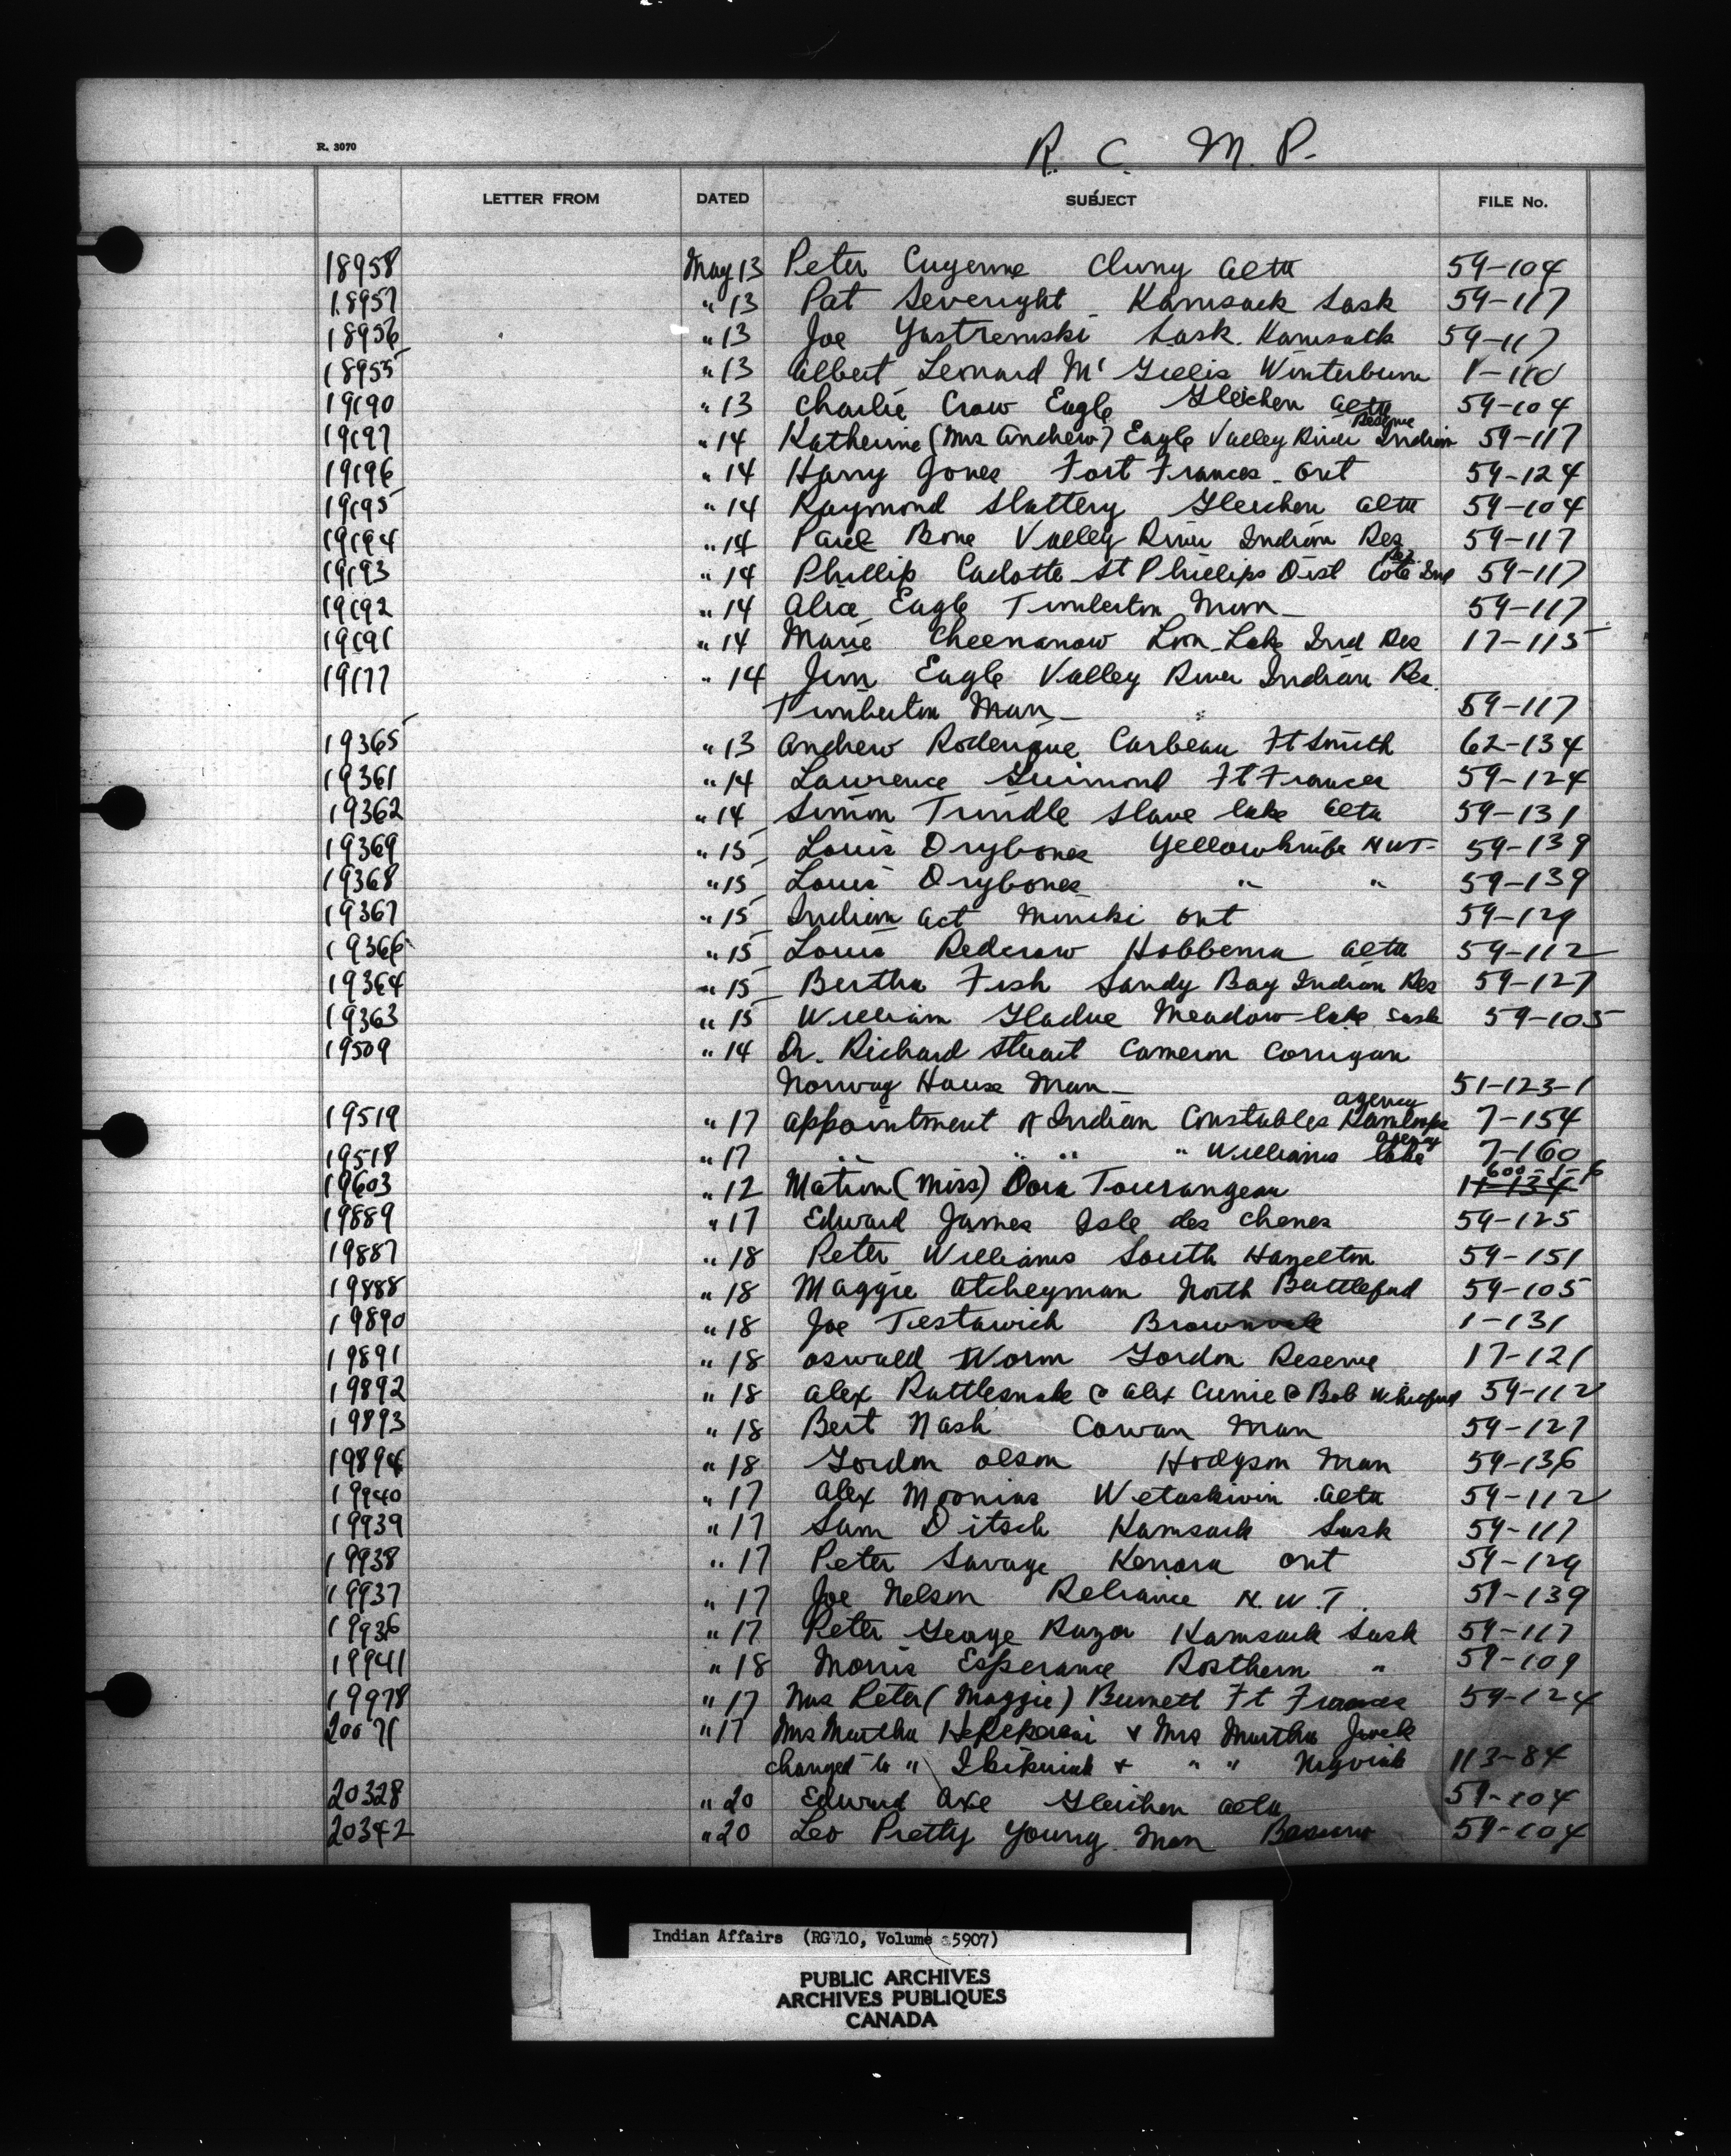 R. 3070
R. C. M. P.
LETTER FROM DATED SUBJECT FILE No.
18958 May 13 Peter Cuyenne Cluny Alta 59-104
18957 " 13 Pat Severight Kamsack Sask 59-117
18956 " 13 Joe Yastremski Sask. Kamsack 59-117
18955 " 13 Albert Leonard Mc Gillis Winterburn 1-110
19190 " 13 Charlie Crow Eagle Gleichen Alta 59-104
19197 " 14 Katherine (Mrs Andrew) Eagle Valley River Indian Reserve 59-117
19196 " 14 Harry Jones Fort Frances Ont 59-124
19195 " 14 Raymond Slattery Gleichen Alta 59-104
19194 " 14 Paul Bone Valley River Indian Res 59-117
19193 " 14 Phillip Cadotte St Phillips Dist Cote Ind Res 59-117
19192 " 14 Alice Eagle Timberton Man 59-117
19191 " 14 Marie Cheenanow Loon Lake Ind Res 17-115
19177 " 14 Jim Eagle Valley River Indian Res.
Timberton Man 59-117
19365 " 13 Andrew Roderique Carbeau Ft Smith 62-134
19361 " 14 Lawrence Guimond Ft Frances 59-124
19362 " 14 Simon Trindle Slave lake Alta 59-131
19369 " 15 Louis Drybones Yellowknife NWT 59-139
19368 " 15 Louis Drybones " " 59-139
19367 " 15 Indian Act Minaki Ont 59-129
19366 " 15 Louis Redcrow Hobbema Alta 59-112
19364 " 15 Bertha Fish Sandy Bay Indian Res 59-127
19363 " 15 William Gladue Meadow lake Sask 59-105
19509 " 14 Dr. Richard Stuart Cameron Corrigan
Norway House Man 51-123-1
19519 " 17 Appointment of Indian Constables Kamloops Agency 7-154
19518 " 17 " " " " Williams lake Agency 7-160
19603 " 12 Matron (Miss) Dora Tourangeau 11-134 600-1-6
19889 " 17 Edward James Isle des Chenes 59-125
19887 " 18 Peter Williams South Hazelton 59-151
19888 " 18 Maggie Atcheyman North Battleford 59-105
19890 " 18 Joe Testawich Brownvale 1-131
19891 " 18 Oswald Worm Gordon Reserve 17-121
19892 " 18 Alex Rattlesnake & Alex Currie & Bob Whitford 59-112
19893 " 18 Bert Nash Cowan Man 59-127
19894 " 18 Gordon Olson Hodgson Man 59-136
19940 " 17 Alex Moonias Wetaskiwin Alta 59-112
19939 " 17 Sam Ditsch Kamsack Sask 59-117
19938 " 17 Peter Savage Kenora Ont 59-129
19937 " 17 Joe Nelson Reliance N.W.T. 59-139
19936 " 17 Peter George Razor Kamsack Sask 59-117
19941 " 18 Morris Esperance Rosthern " 59-109
19978 " 17 Mrs Peter (Maggie) Burnett Ft Frances 59-124
20071 " 17 Mrs Martha & Mrs Martha
changed to " Ikikuiak & " " Nagviak 113-84
20328 " 20 Edward Axe Gleichen Alta 59-104
20342 " 20 Leo Pretty Young Man Bassano 59-104
Indian Affairs (RG 10, Volume 5907)
PUBLIC ARCHIVES
ARCHIVES PUBLIQUES
CANADA